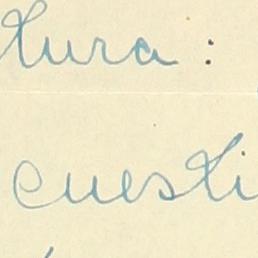 tura:
cuesti